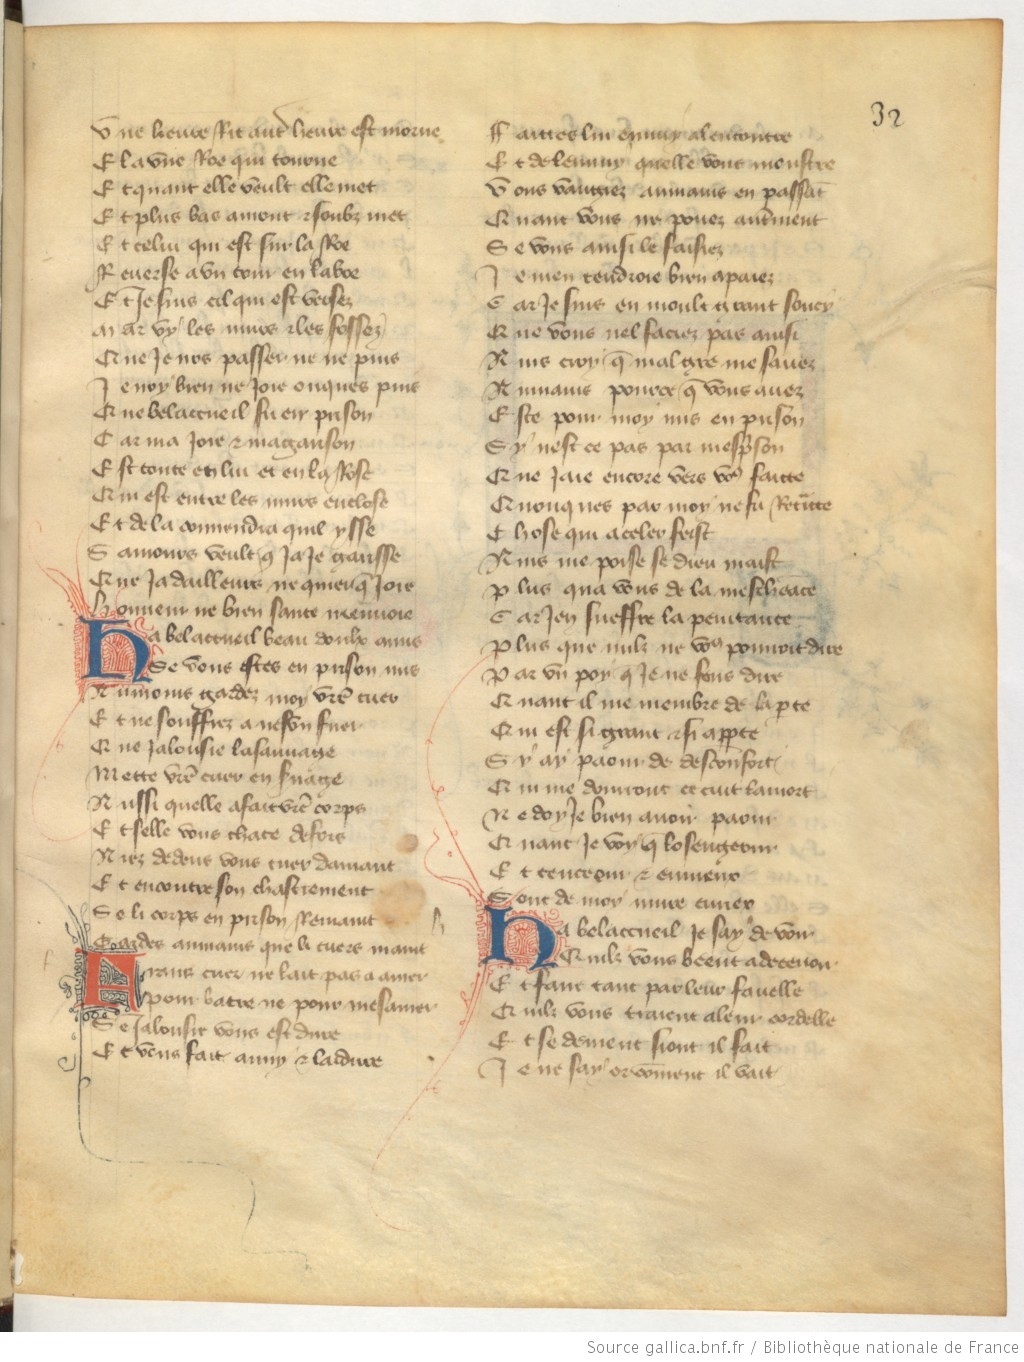 32
Une heure Rit autre heure est morne
E la vne Roe qui tourne
Et quant elle veult elle met
Et plus bas amont & soubz met
Et celui qui est sur la Roe
Reuerse a vn tour en la boe
Et Je suis cil qui est versez
Mar vy les murs & les fossez
Que Je nos passer ne ne puis
Je noy bien ne Joie onques puis
Que belacueil fu en prison
Car ma Joie & ma garison
Est toute en lui et en la Rose
Qui est entre les murs enclose
Et de la conuendra quil ysse
S amours veult q̃ Ja Je garisse
Que Ja dailleurs ne quier q̃ Joie
Honneur ne bien sante memoire
Ha belaccueil beau doulx amis
Se vous estes en prison mis
Aumoins gardez moy vr̃e cuer
Et ne souffrez a nesvn fuer
Que Jalousie la sauuage
Mette vr̃e cuer en seruage
Aussi quelle a fait vr̃e corps
Et selle vous chace defors
Aiez dedens vous cuer daimant
Et encontre son chastiement
Se li corps en prison Remaint
Gardes aumains que li cuers maint
Frans cuer ne lait pas a amer
pour batre ne pour mesamer
Se Jalousie vous est dure
Et vous fait anuy & laidure
Faictes lui ennuy alencontre
Et de lennuy quelle vous monstre
Vous vangiez aumains en passãt
Quant vous ne pouez autrement
Se vous ainsi le faisiez
Je men tendroie bien apaiez
Car Je suis en moult grant soucy
Que vous nel faciez pas ainsi
Ains croy q̃ mal gre me sauez
Aumains pource q̃ vous auez
Este pour moy mis en prison
Sy nest ce pas par mesprison
Que Jaie encore vers vo⁹ faitte
Quonques par moy ne fu Retraitte
Chose qui a celer feist
Ains me poise se dieu maist
Plus qua vous de la mescheãce
Car Jen sueffre la penitance
Plus que nulz ne vo⁹ pourroit dire
Par vn poy q̃ Je ne fons dire
Quant il me membre de la perte
Qui est si grant & si apperte
Sy ay paour de desconfort
Qui me donront ce cuit la mort
Ne doy Je bien auoir paour
Quant Je voy q̃ losengeour
Et tenceour & enuieux
Sont de moy nuire curieux
Ha belaccueil Je say de voir
Quilz vous beent a deceuoir
Et font tant par leur fauelle
Quilz vous traient a leur cordelle
Et se deuient si ont il fait
Je ne say or comment il vait
Source gallica.bnf.fr / Bibliothèque nationale de France